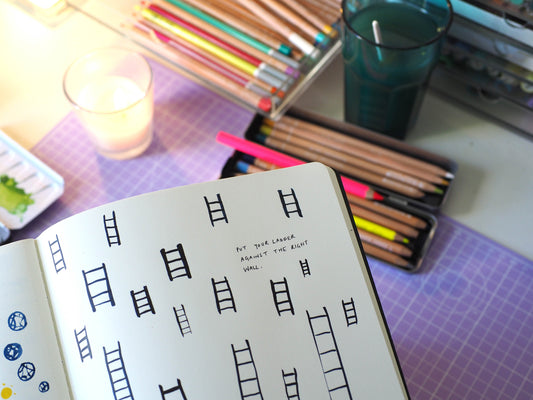 PUT YOUR LADDER
AGAINST THE RIGHT
WALL.